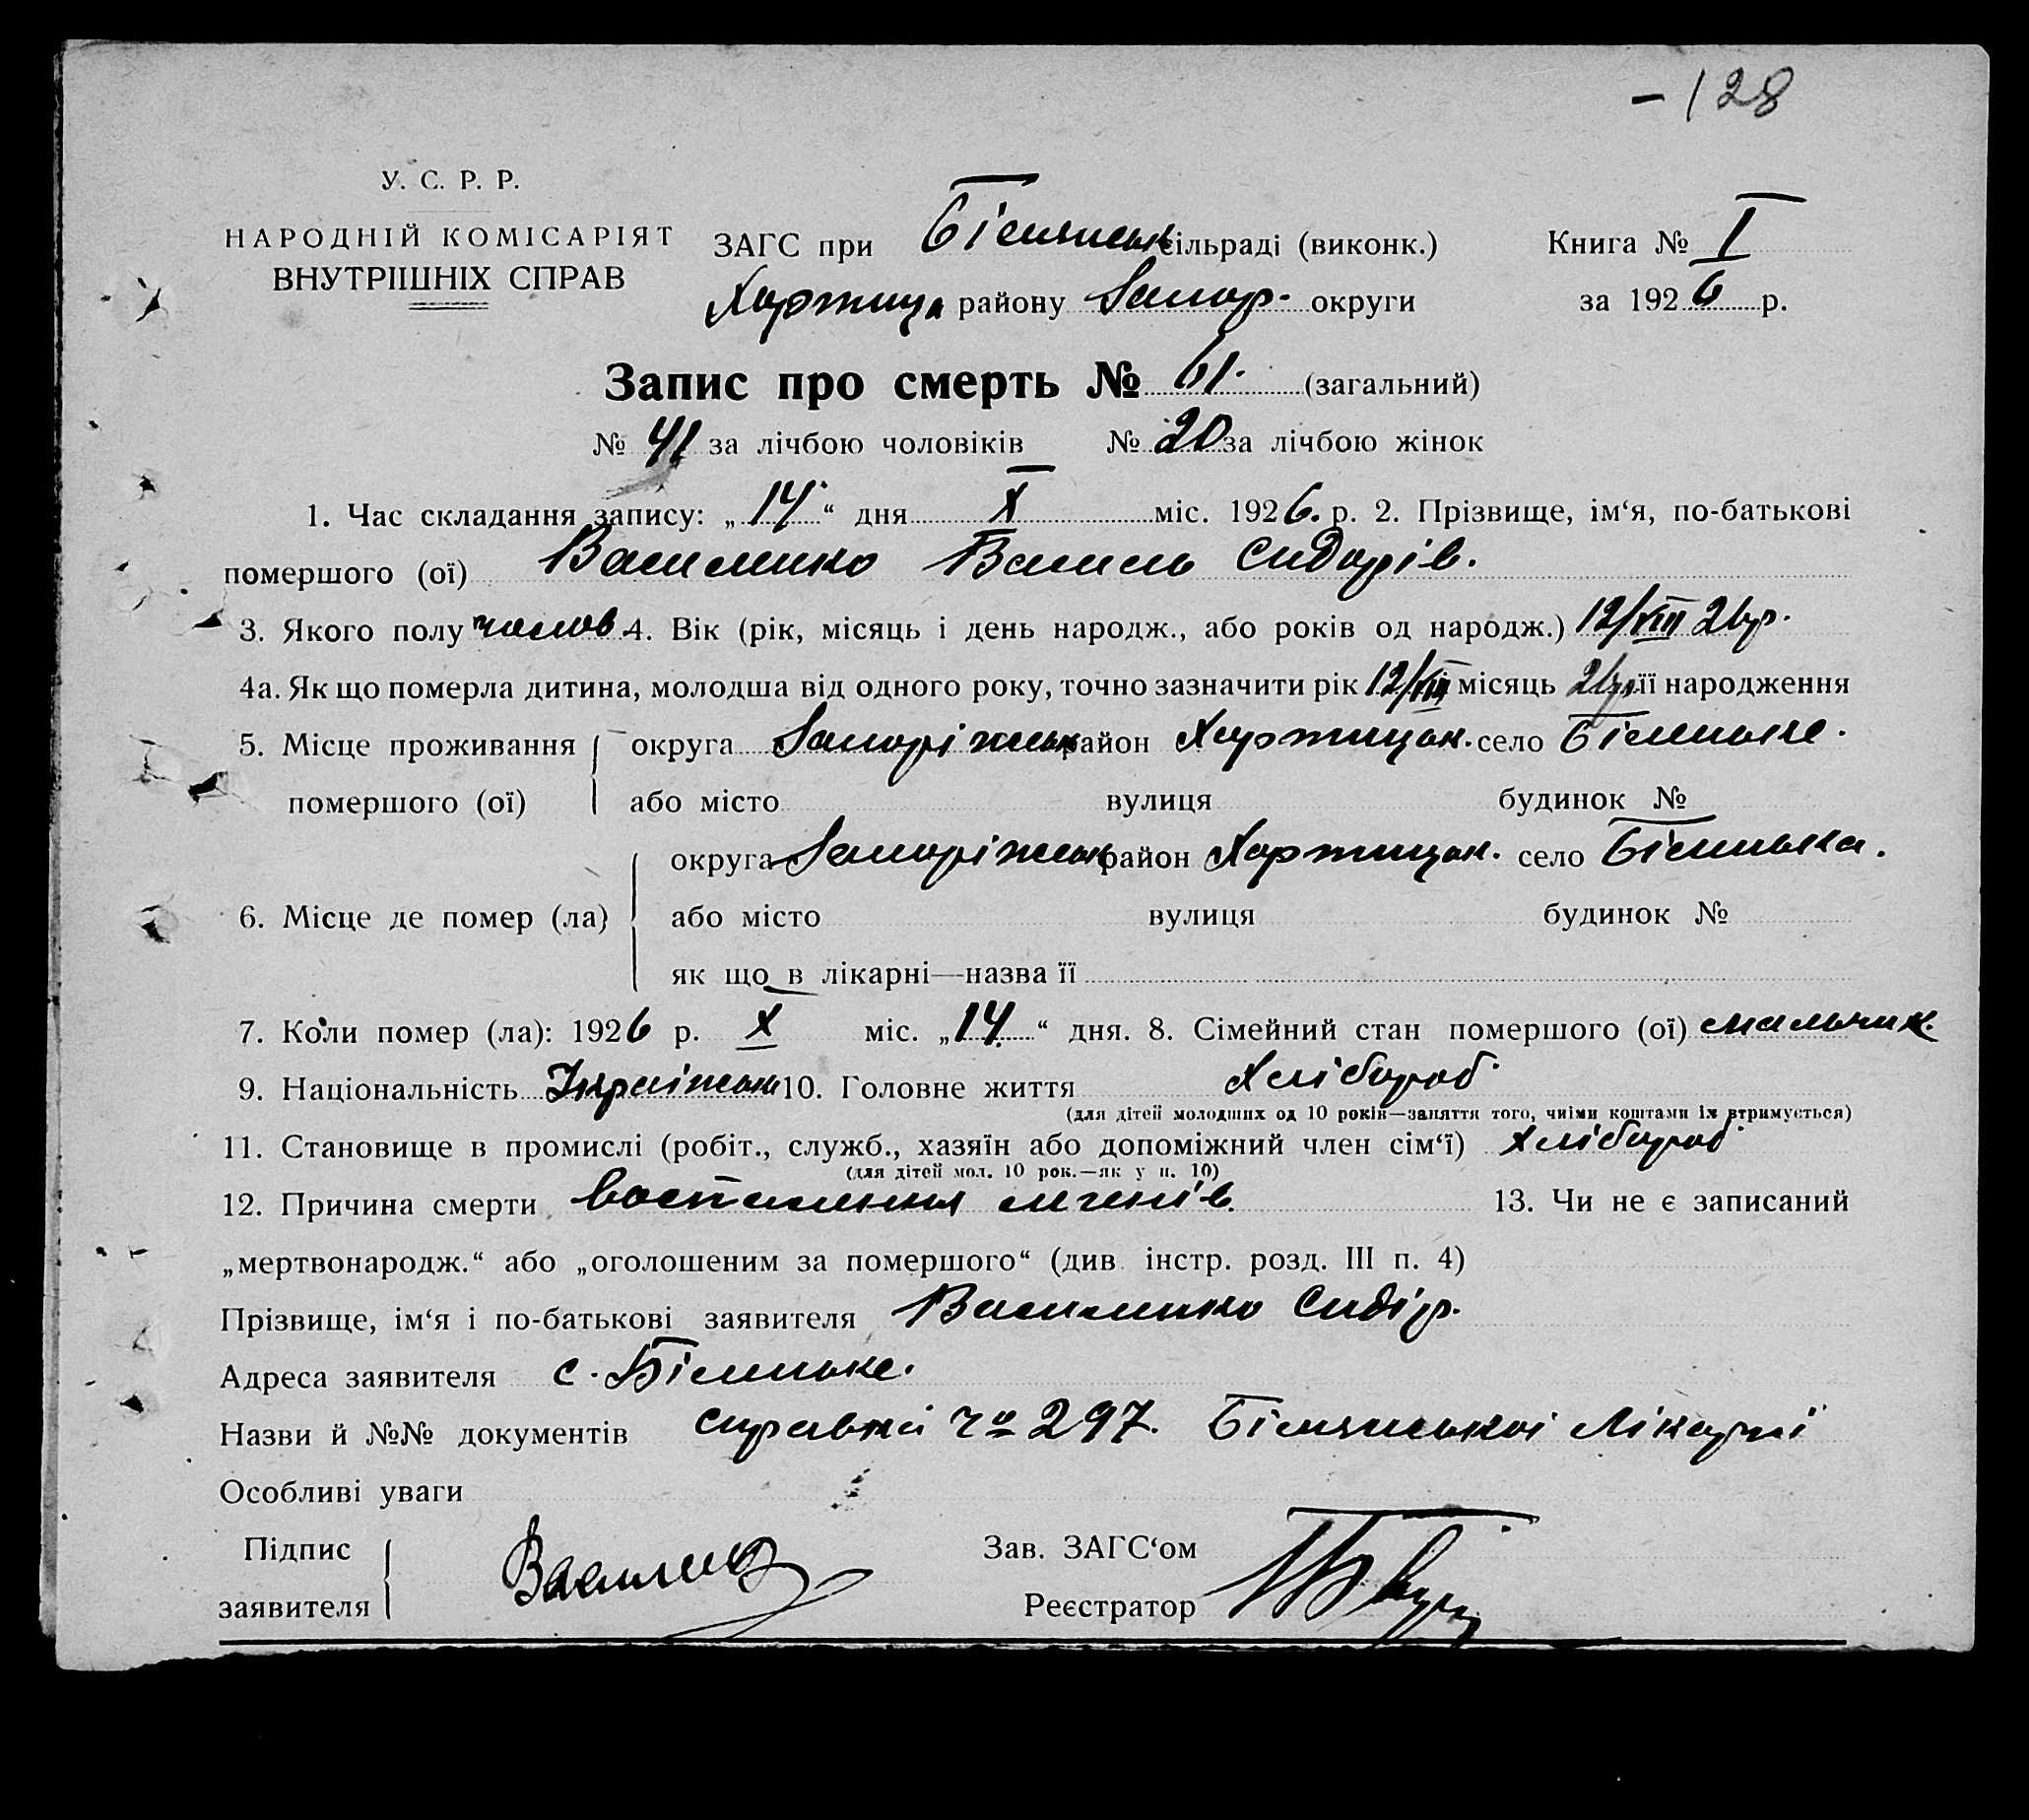 -128
У. С. Р. Р.
НАРОДНІЙ КОМІСАРІЯТ
ВНУТРІШНІХ СПРАВ
ЗАГС при Біленськ сільраді (виконк.)
Книга № I
Хортица району Запор. округи
за 1926 р.
Запис про смерть № 61. (загальний)
№ 41 за лічбою чоловіків № 20 за лічбою жінок
1. Час складання запису: „14“ дня X міс. 1926. р. 2. Прізвище, ім‘я, по-батькові
помершого (ої) Василенко Василь Сидорів.
3. Якого полу чолов. 4. Вік (рік, місяць і день народж., або років од народж.) 12/VIII 26р.
4а. Як що померла дитина, молодша від одного року, точно зазначити рік 12/VIII місяць 26р. її народження
5. Місце проживання округа Запоріжськ район Хортицьк. село Біленьке.
помершого (ої) або місто вулиця будинок №
округа Запоріжськ район Хортицьк. село Біленька.
6. Місце де помер (ла) або місто вулиця будинок №
як що в лікарні—назва її
7. Коли помер (ла): 1926 р. X міс. „14“ дня. 8. Сімейний стан помершого (ої) мальчик.
9. Національність 10. Головне життя Хлібороб
(для дітей молодших од 10 років—заняття того, чиїми коштами їх втримується)
11. Становище в промислі (робіт., служб., хазяїн або допоміжний член сім‘ї) Хлібороб
(для дітей мол. 10 рок.—як у п. 10)
12. Причина смерти воспаления легенів. 13. Чи не є записаний
„мертвонародж.“ або „оголошеним за помершого“ (див. інстр. розд. III п. 4)
Прізвище, ім‘я і по-батькові заявителя Василенко Сидір.
Адреса заявителя с. Біленьке.
Назви й №№ документів справка 297. Біленської Лікарні
Особливі уваги
Підпис
заявителя
Зав. ЗАГС‘ом
Реєстратор